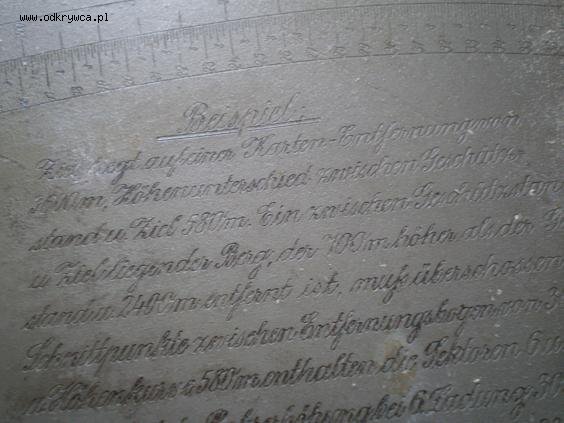 www.odkrywca.pl
Beispiel:
Ziel liegt auf einer Karten-Entfernung von
3600m, Höhenunterschied zwischen Geschütz-
stand u. Ziel 580m. Ein zwischen Geschützstan
u. Ziel liegender Berg, der 700m höher als der G
stand u. 2400m entfernt ist, muß überschossen
Schnittpunkte zwischen Entfernungsbogen von 3
u. Höhenkurve 580m enthalten die Sektoren 6 u
bei 6. Ladung 30